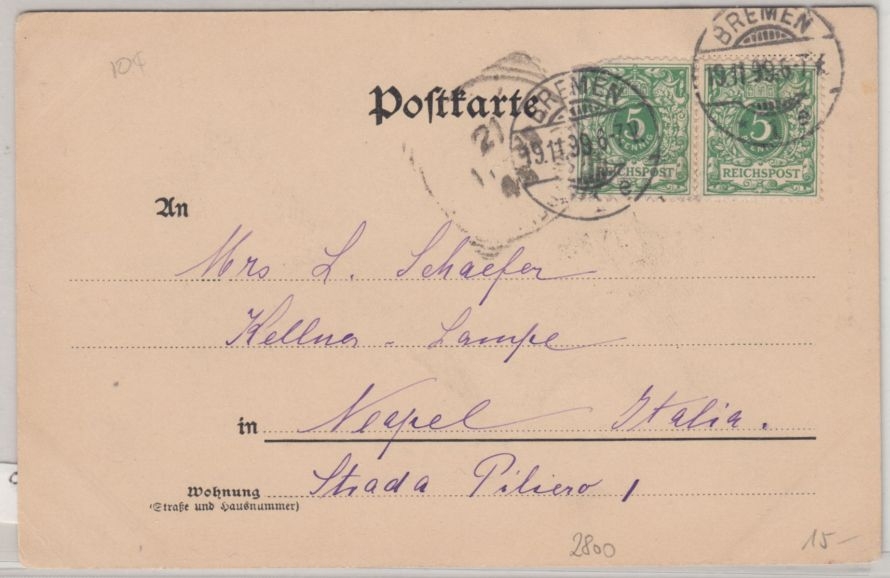 10¢
Postkarte
BREMEN
19.11.99.6-7
e
BREMEN
19.11.99.6-7
e
5
PFENNIG
REICHSPOST
5
PFENNIG
REICHSPOST
21
An
Mrs L. Schaefer
Kellner-Lampe
in Neapel Italia.
Wohnung Strada Piliero 1
(Straße und Hausnummer)
2800
15-